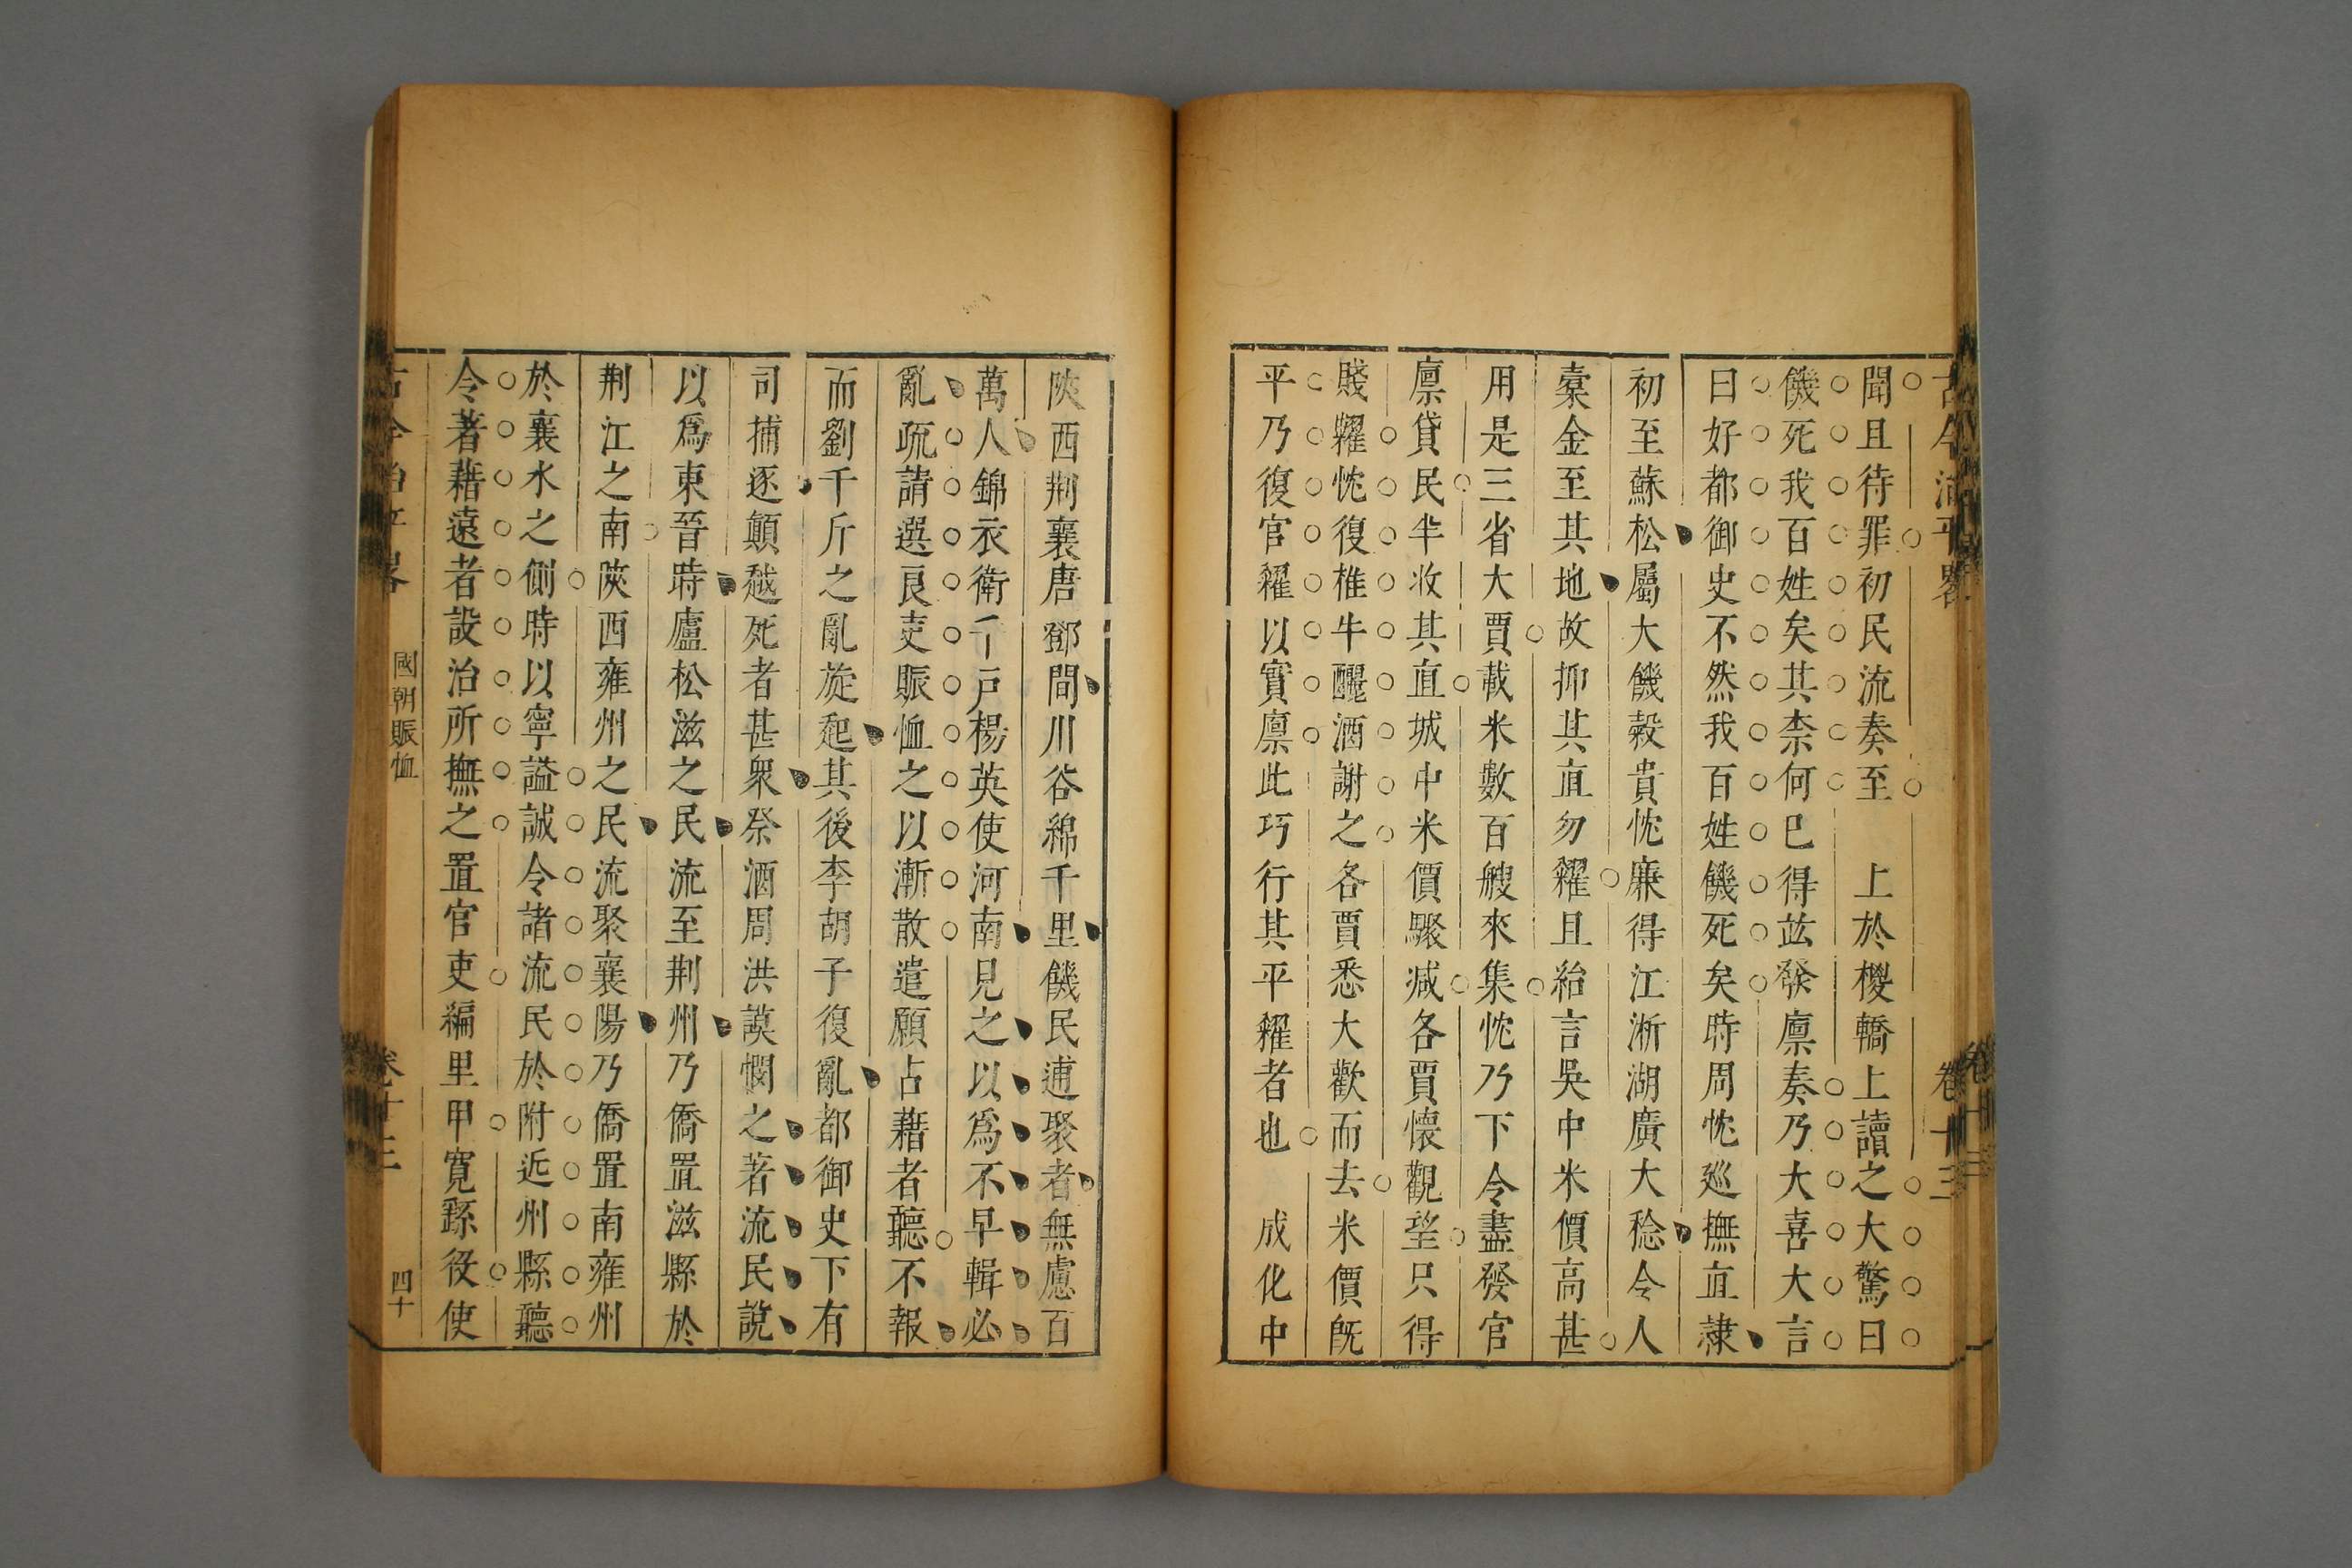 古今治平畧 卷十三
聞且待罪初民流奏至 上於椶轎上讀之大驚曰
饑死我百姓矣其柰何已得竑發廪奏乃大喜大言
曰好都御史不然我百姓饑死矣時周忱巡撫直隷
初至蘇松屬大饑穀貴忱廉得江浙湖廣大稔令人
橐金至其地故抑其直勿糴且紿言吳中米價高甚
用是三省大賈載米數百艘來集忱乃下令盡發官
廪貸民半收其直城中米價驟减各賈懷觀望只得
賤糶忱復椎牛釃酒謝之各賈悉大歡而去米價旣
平乃復官糴以實廪此巧行其平糴者也 成化中
陜西荆襄唐鄧間川谷綿千里饑民逋聚者無慮百
萬人錦衣衛千戶楊英使河南見之以爲不早輯必
亂疏請選良吏賑恤之以漸散遣願占藉者聽不報
而劉千斤之亂旋起其後李胡子復亂都御史下有
司捕逐顛越死者甚衆祭酒周洪謨憫之著流民說
以爲東晉時廬松滋之民流至荆州乃僑置滋縣於
荆江之南陜西雍州之民流聚襄陽乃僑置南雍州
於襄水之側時以寧謐誠令諸流民於附近州縣聽
令著藉遠者設治所撫之置官吏編里甲寛繇役使
國朝賑恤
四十